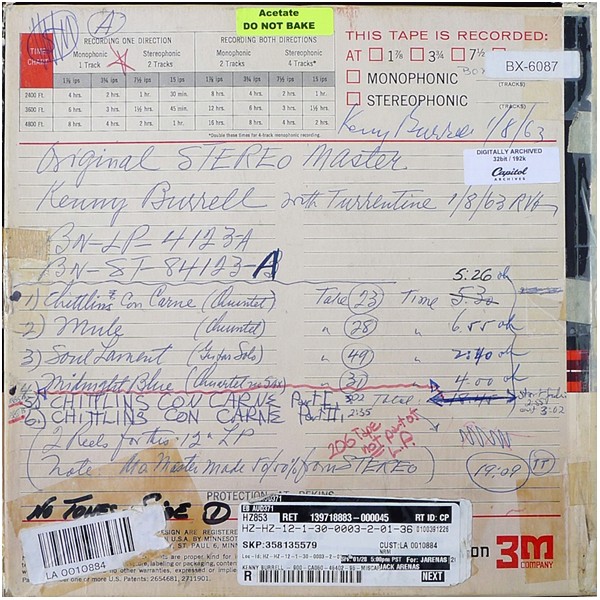 Acetate
DO NOT BAKE
A
TIME
CHART
RECORDING ONE DIRECTION
RECORDING BOTH DIRECTIONS
Monophonic Stereophonic Monophonic Stereophonic
1 Track 2 Tracks 2 Tracks 4 Tracks*
1⅞ ips 3¾ ips 7½ ips 15 ips 1⅞ ips 3¾ ips 7½ ips 15 ips
2400 Ft. 4 hrs. 2 hrs. 1 hr. 30 min. 8 hrs. 4 hrs. 2 hrs. 1 hr.
3600 Ft. 6 hrs. 3 hrs. 1½ hrs. 45 min. 12 hrs. 6 hrs. 3 hrs. 1½ hrs.
4800 Ft. 8 hrs. 4 hrs. 2 hrs. 1 hr. 16 hrs. 8 hrs. 4 hrs. 2 hrs.
*Double these times for 4-track monophonic recording.
THIS TAPE IS RECORDED:
AT 1⅞ 3¾ 7½
BX-6087
MONOPHONIC
(TRACKS)
STEREOPHONIC
(TRACKS)
Kenny Burrell 1/8/63
Original STEREO Master
DIGITALLY ARCHIVED
32bit / 192k
Capitol
ARCHIVES
Kenny Burrell with Turrentine 1/8/63 RVG
BN-LP-4123-A
BN-ST-84123-A
5:26 ok
1) Chittlins Con Carne (Quintet) Take 23 Time 5:30
2) Mule (Quintet) " 28 " 6:55 ok
3) Soul Lament (Guitar Solo) " 49 " 2:40 ok
4) Midnight Blue (Quartet no Sax) " 31 " 4:00 ok
5) CHITTLINS CON CARNE Part I, 3:02 Total: 18:45
6) CHITTLINS CON CARNE Part II, 2:55
2:55
3:02
(2 Reels for this 12" LP
206 Tune
not part of
L.P.
(Note Mono Master Made 50/50% from STEREO) 19:09 IT
PROTECTION
NO TONES - SIDE 1
LA 0010884
EB AU0371
HZ853 RET 139718883-000045 RT ID: CP
HZ-HZ-12-1-30-0003-2-01-36 0100381226
SKP:358135579 CUST:LA 0010884
NRM
For: JARENAS
JACK ARENAS
R NEXT
3M
COMPANY
Patents: 2654681, 2711901.